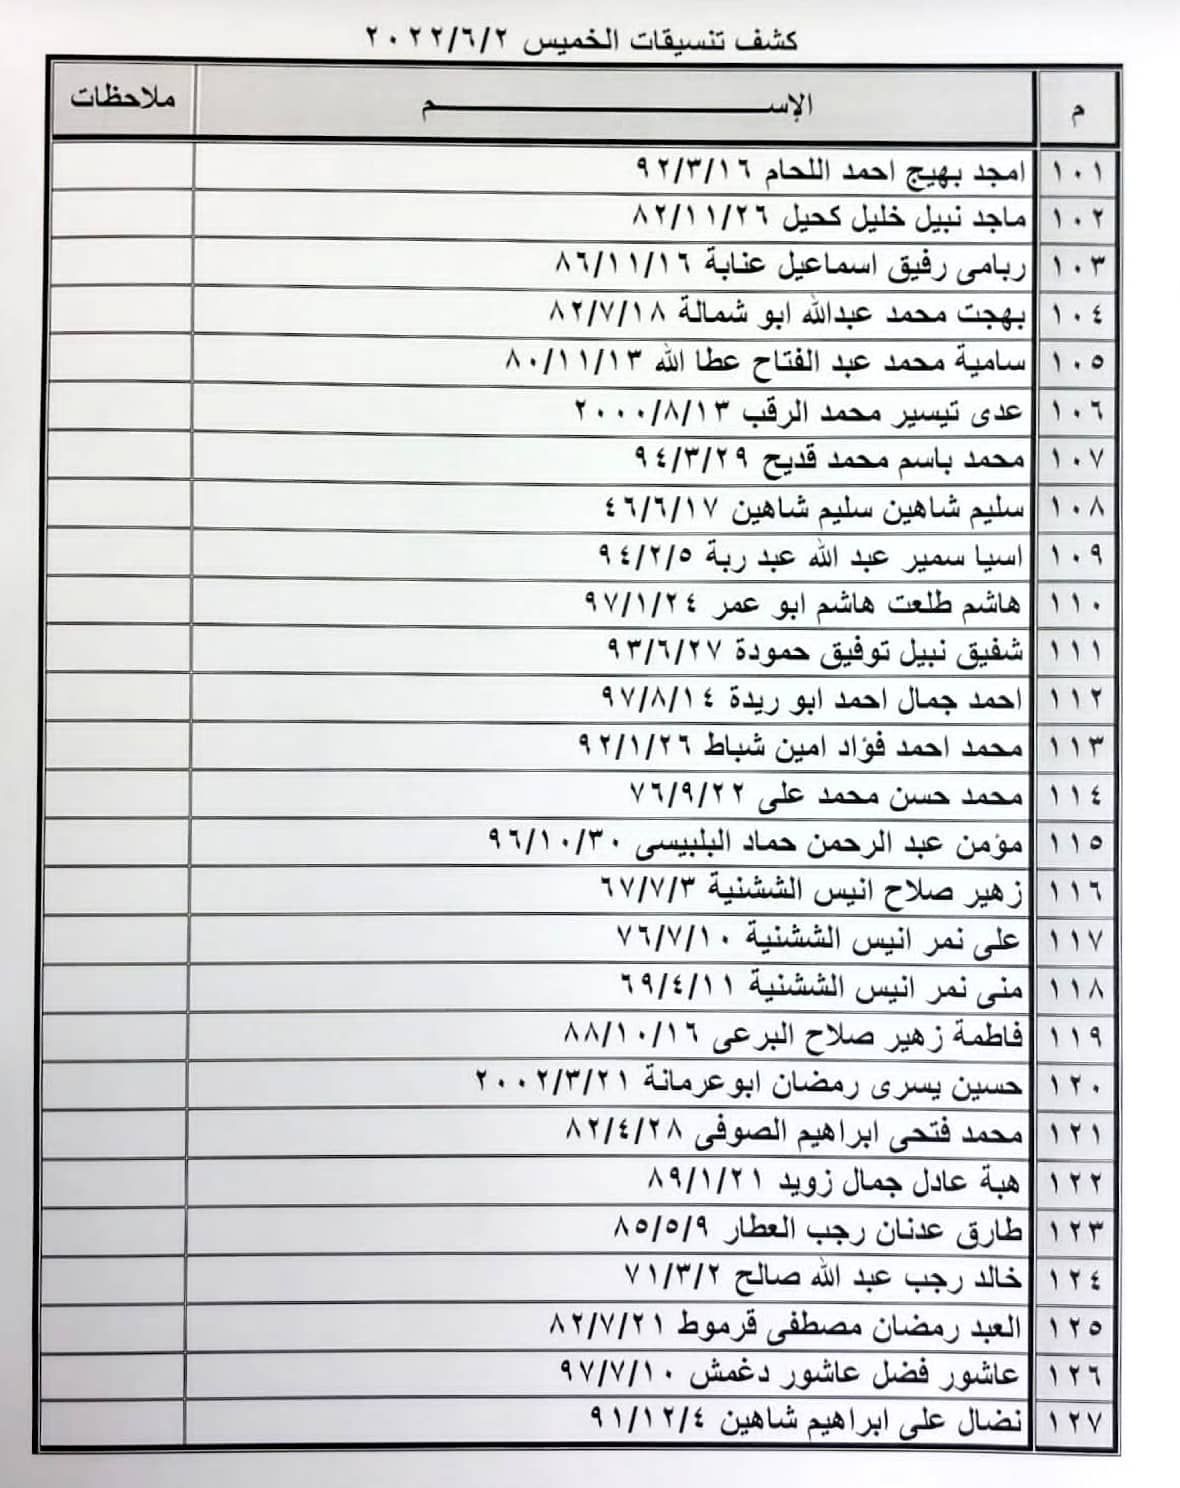 كشف تنسيقات الخميس ٢٠٢٢/٦/٢
م الإســـــــــم ملاحظات
١٠١ امجد بهيج احمد اللحام ٩٢/٣/١٦
١٠٢ ماجد نبيل خليل كحيل ٨٢/١١/٢٦
١٠٣ ربامى رفيق اسماعيل عنابة ٨٦/١١/١٦
١٠٤ بهجت محمد عبدالله ابو شمالة ٨٢/٧/١٨
١٠٥ سامية محمد عبد الفتاح عطا الله ٨٠/١١/١٣
١٠٦ عدى تيسير محمد الرقب ٢٠٠٠/٨/١٣
١٠٧ محمد باسم محمد قديح ٩٤/٣/٢٩
١٠٨ سليم شاهين سليم شاهين ٤٦/٦/١٧
١٠٩ اسيا سمير عبد الله عبد ربة ٩٤/٢/٥
١١٠ هاشم طلعت هاشم ابو عمر ٩٧/١/٢٤
١١١ شفيق نبيل توفيق حمودة ٩٣/٦/٢٧
١١٢ احمد جمال احمد ابو ريدة ٩٧/٨/١٤
١١٣ محمد احمد فؤاد امين شباط ٩٢/١/٢٦
١١٤ محمد حسن محمد على ٧٦/٩/٢٢
١١٥ مؤمن عبد الرحمن حماد البلبيسى ٩٦/١٠/٣٠
١١٦ زهير صلاح انيس الششنية ٦٧/٧/٣
١١٧ على نمر انيس الششنية ٧٦/٧/١٠
١١٨ منى نمر انيس الششنية ٦٩/٤/١١
١١٩ فاطمة زهير صلاح البرعى ٨٨/١٠/١٦
١٢٠ حسين يسرى رمضان ابوعرمانة ٢٠٠٢/٣/٢١
١٢١ محمد فتحى ابراهيم الصوفى ٨٢/٤/٢٨
١٢٢ هبة عادل جمال زويد ٨٩/١/٢١
١٢٣ طارق عدنان رجب العطار ٨٥/٥/٩
١٢٤ خالد رجب عبد الله صالح ٧١/٣/٢
١٢٥ العبد رمضان مصطفى قرموط ٨٢/٧/٢١
١٢٦ عاشور فضل عاشور دغمش ٩٧/٧/١٠
١٢٧ نضال على ابراهيم شاهين ٩١/١٢/٤